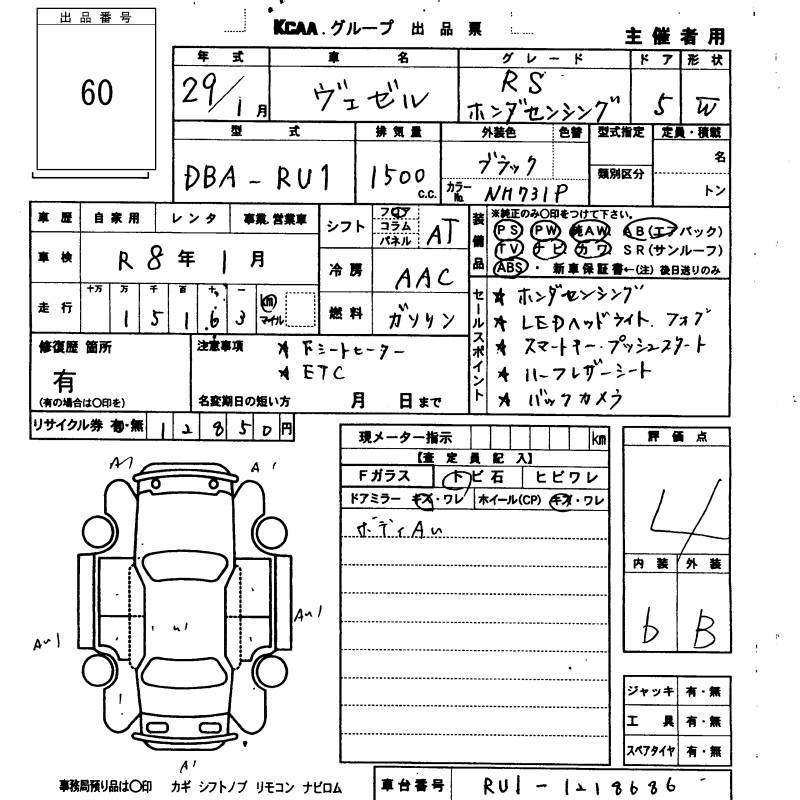 出品番号
60
KCAA.グループ 出品票
主催者用
年式 車名 グレード ドア 形状
29/1月 ヴェゼル RS ホンダセンシング 5 W
型式 排気量 外装色 色替 型式指定 定員・積載
DBA-RU1 1500 c.c. ブラック 類別区分 名
カラーNo. NH731P トン
車歴 自家用 レンタ 事業.営業車
シフト フロア コラム パネル AT
装備品 ※純正のみ○印をつけて下さい。
PS PW 純AW AB(エアバック)
TV ナビ カワ SR(サンルーフ)
ABS ・ 新車保証書←(注)後日送りのみ
車検 R8年1月
冷房 AAC
走行 十万 万 千 百 十 一
15163 km マイル
燃料 ガソリン
セールスポイント
★ ホンダセンシング
★ LEDヘッドライト.フォグ
★ スマートキー・プッシュスタート
★ ハーフレザーシート
★ バックカメラ
修復歴 箇所
有
(有の場合は○印を)
注意事項
★ ドシートヒーター
★ ETC
名変期日の短い方 月 日まで
リサイクル券 有・無 12850円
現メーター指示 km
【査定員記入】
Fガラス トビ石 ヒビワレ
ドアミラー キズ・ワレ ホイール(CP) キズ・ワレ
ボディAu
評価点
4
内装 外装
b B
A1 A1
Au1 u1 Au1
1
A1
ジャッキ 有・無
工具 有・無
スペアタイヤ 有・無
事務局預り品は○印 カギ シフトノブ リモコン ナビロム
車台番号 RU1-1218686